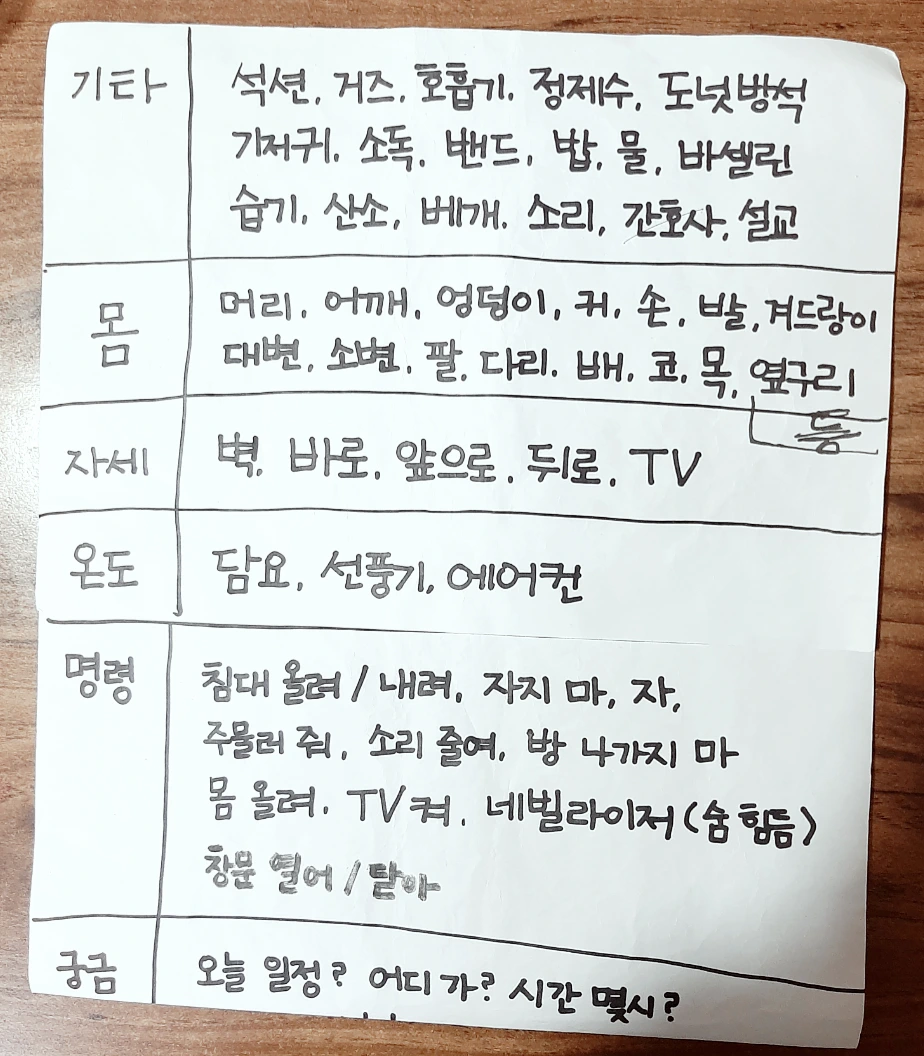 기타
석션, 거즈, 호흡기, 정제수, 도넛방석
기저귀, 소독, 밴드, 밥, 물, 바셀린
습기, 산소, 베개, 소리, 간호사, 설교
몸
머리, 어깨, 엉덩이, 귀, 손, 발, 겨드랑이
대변, 소변, 팔, 다리, 배, 코, 목, 옆구리
등
자세
벽, 바로, 앞으로, 뒤로, TV
온도
담요, 선풍기, 에어컨
명령
침대 올려 / 내려, 자지 마, 자,
주물러 줘, 소리 줄여, 방 나가지 마
몸 올려, TV 켜, 네빌라이저(숨 힘듬)
창문 열어 / 닫아
궁금
오늘 일정? 어디 가? 시간 몇시?